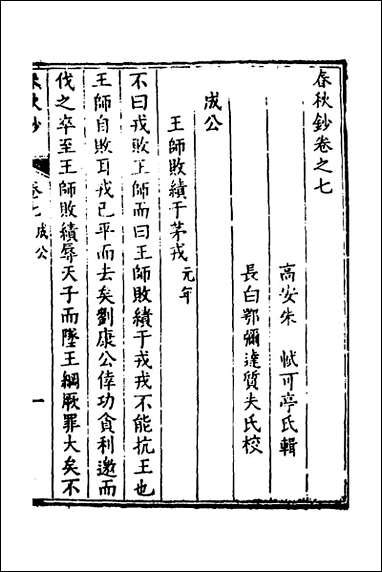 春秋鈔卷之七
高安朱軾可亭氏輯
長白鄂彌達質夫氏校
成公
王師敗績于茅戎元年
不曰戎敗王師而曰王師敗績于戎戎不能抗王也
王師自敗耳戎已平而去矣劉康公倖功貪利邀而
伐之卒至王師敗績辱天子而墜王綱厥罪大矣不
卷七 成公
一